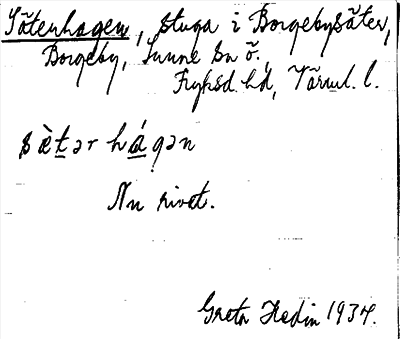 Sätenhagen, stuga i Borgebysäter,
Borgeby, Sunne sn ö.
Fryksd. hd, Värml. l.
sὲt̲ər há̲gən
Nu rivet.
Greta Hedin 1934.